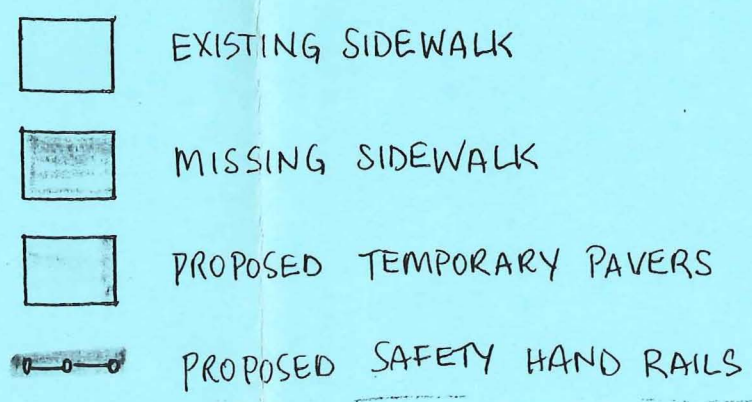 EXISTING SIDEWALK
MISSING SIDEWALK
PROPOSED TEMPORARY PAVERS
PROPOSED SAFETY HAND RAILS